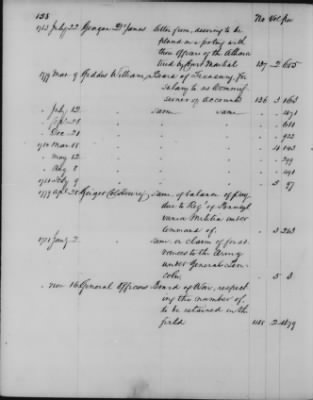 158
No Vol. Pa
1783 July 22 Geagan Dr. James Letter from, desiring to be
placed on a footing with
those officers of the
tried by Court Martial 137 2 605
1779 Mar. 9 Geddes William, Board of Treasury, for
salary to as Commis-
sioner of accounts 136 3 163
" July 12 " same same " " 471
" Sept. 28 " " " 618
" Dec. 21 " " " 922
1780 Mar 15 " " 4 143
" May 12 " " " 299
" Aug 8 " "
1781 Feby 9 " " 5 87
1779 Apl 28 Geiger Col. Henry, same, of balance of Pay,
due to Regt. of Pennsyl
vania Militia under
command of. " 3 263
1781 Jany 2 " same, on claim of for ad-
vances to the Army
under General Lin-
coln. " 5 3
" Nov 16 General Officers Board of War, respect-
ing the number of,
to be retained in the
field 148 2